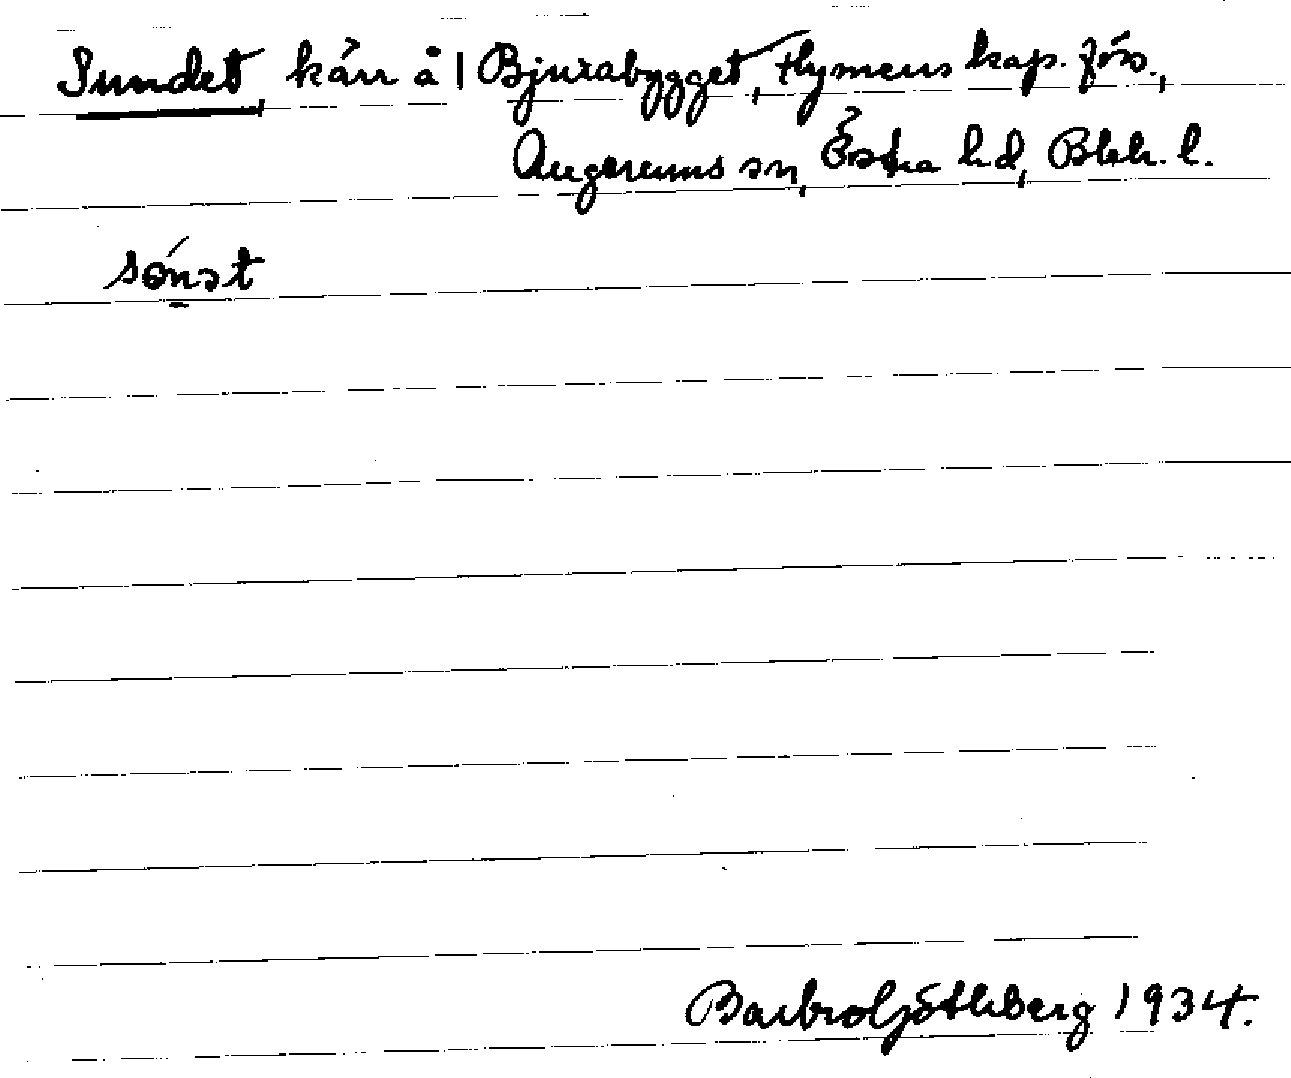 Sundet, kärr å 1 Bjurabygget, Flymens kap. förs.,
Augerums sn, Östra hd, Blek. l.
sɵnət
Barbro Götherberg 1934.